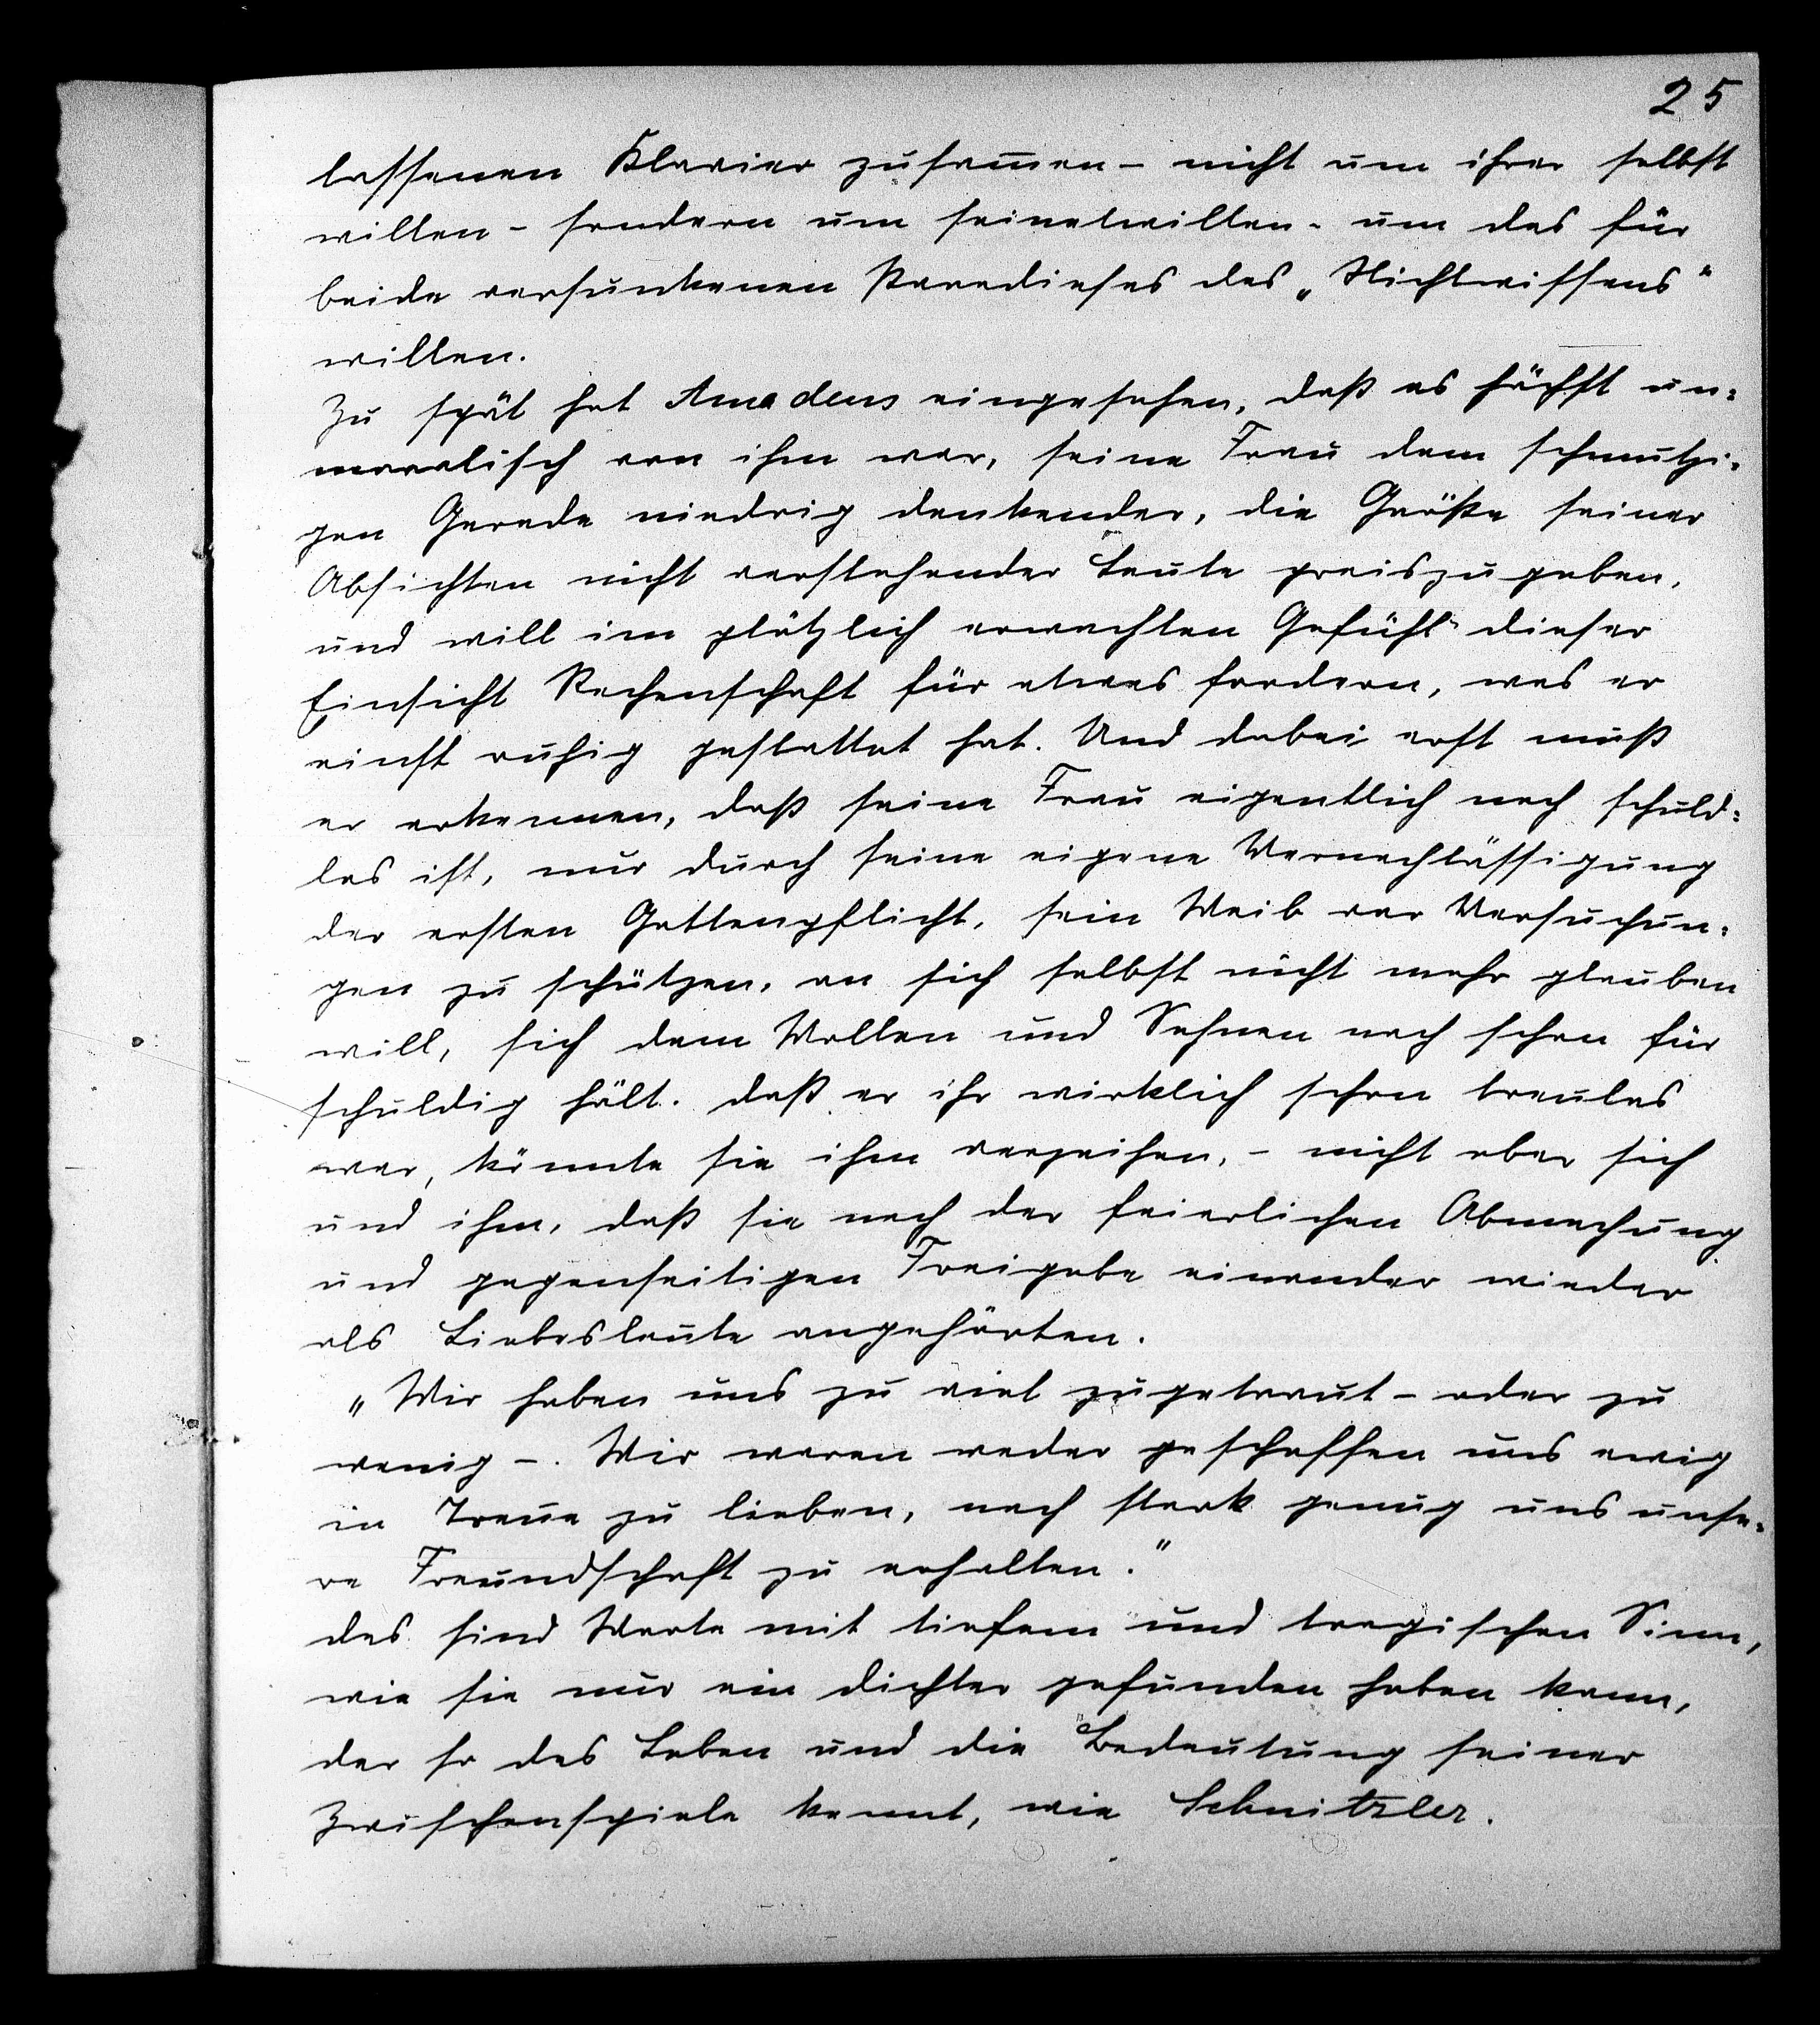 25
lassenen Klavier zusam̅en – nicht um ihrer selbst
willen – sondern um seinetwillen – um des für
beide versunkenen Paradieses des „Nichtwissens"
willen.
Zu spät hat Amadeus eingesehen, daß es höchst un=
moralisch von ihm war, seine Frau dem schmutzi=
gen Gerede niedrig denkender, die Größe seiner
Absichten nicht verstehender Leute preiszugeben,
und will im plötzlich erwachten Gefühl dieser
Einsicht Rechenschaft für etwas fordern, was er
einst ruhig gestattet hat. Und dabei erst muß
er erkennen, daß seine Frau eigentlich noch schuld=
los ist, nur durch seine eigene Vernachlässigung
der ersten Gattenpflicht, sein Weib vor Versuchun=
gen zu schützen, an sich selbst nicht mehr glauben
will, sich dem Wollen und Sehnen nach schon für
schuldig hält. Daß er ihr wirklich schon treulos
war, könnte sie ihm verzeihen, – nicht aber sich
und ihm, daß sie nach der feierlichen Abmachung
und gegenseitigen Freigabe einander wieder
als Liebesleute angehörten.
„Wir haben uns zu viel zugetraut – oder zu
wenig –. Wir waren weder geschaffen uns ewig
in Treue zu lieben, noch stark genug uns unse=
re Freundschaft zu erhalten."
Das sind Worte mit tiefem und tragischen Sinn,
wie sie nur ein Dichter gefunden haben kann,
der so das Leben und die Bedeutung seiner
Zwischenspiele kennt, wie Schnitzler.